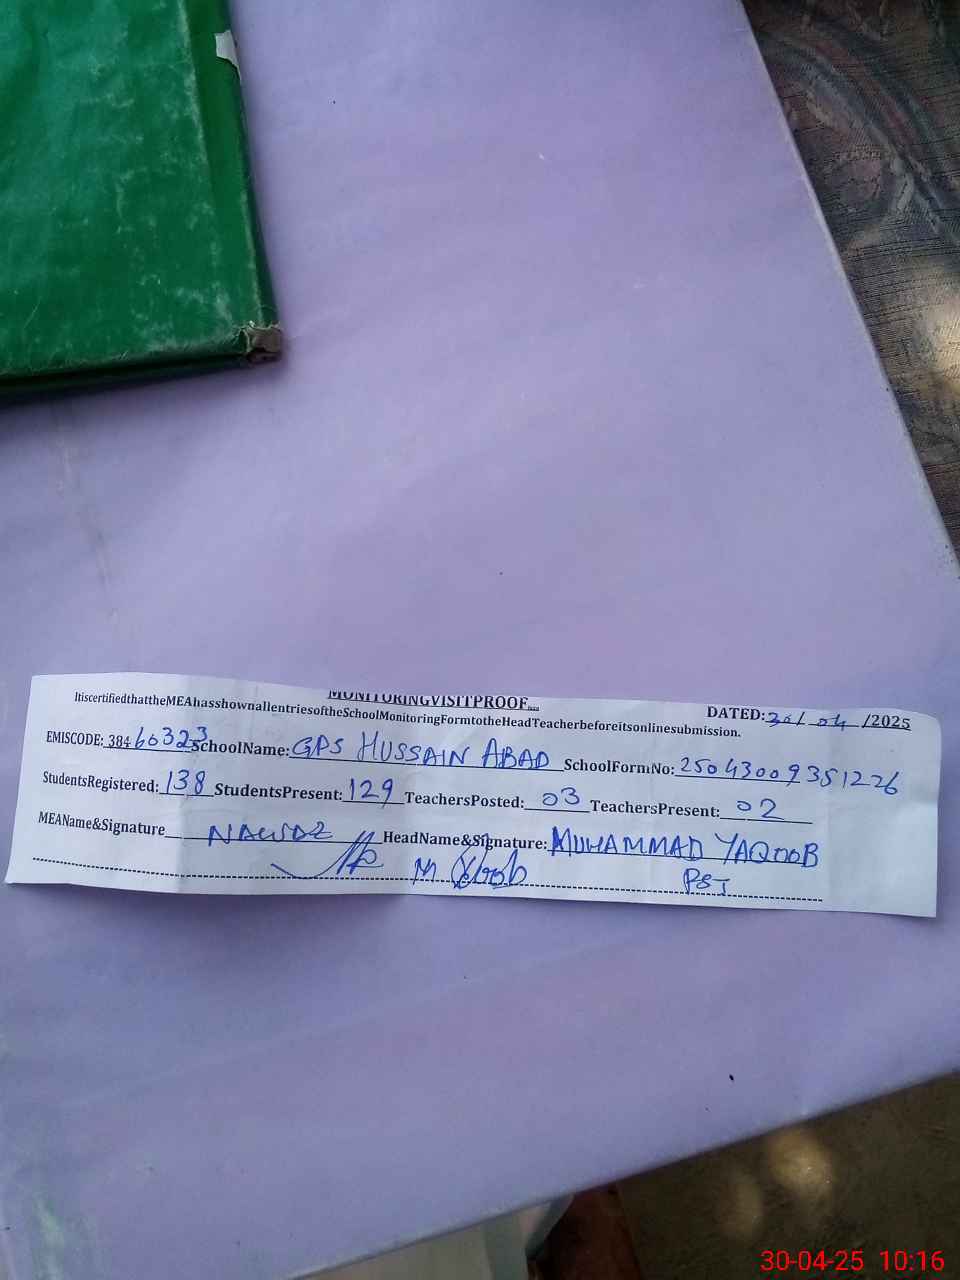 MONITORINGVISITPROOF....
DATED:30/ 04 /2025
ItiscertifiedthattheMEAhasshownallentriesoftheSchoolMonitoringFormtotheHeadTeacherbeforeitsonlinesubmission.
EMISCODE: 38460323 SchoolName: GPS HUSSAIN ABAD SchoolFormNo: 25043009351226
StudentsRegistered: 138 StudentsPresent: 129 TeachersPosted: 03 TeachersPresent: 02
MEAName&Signature NAWAZ HeadName&Signature: MUHAMMAD YAQOOB
PST
30-04-25 10:16